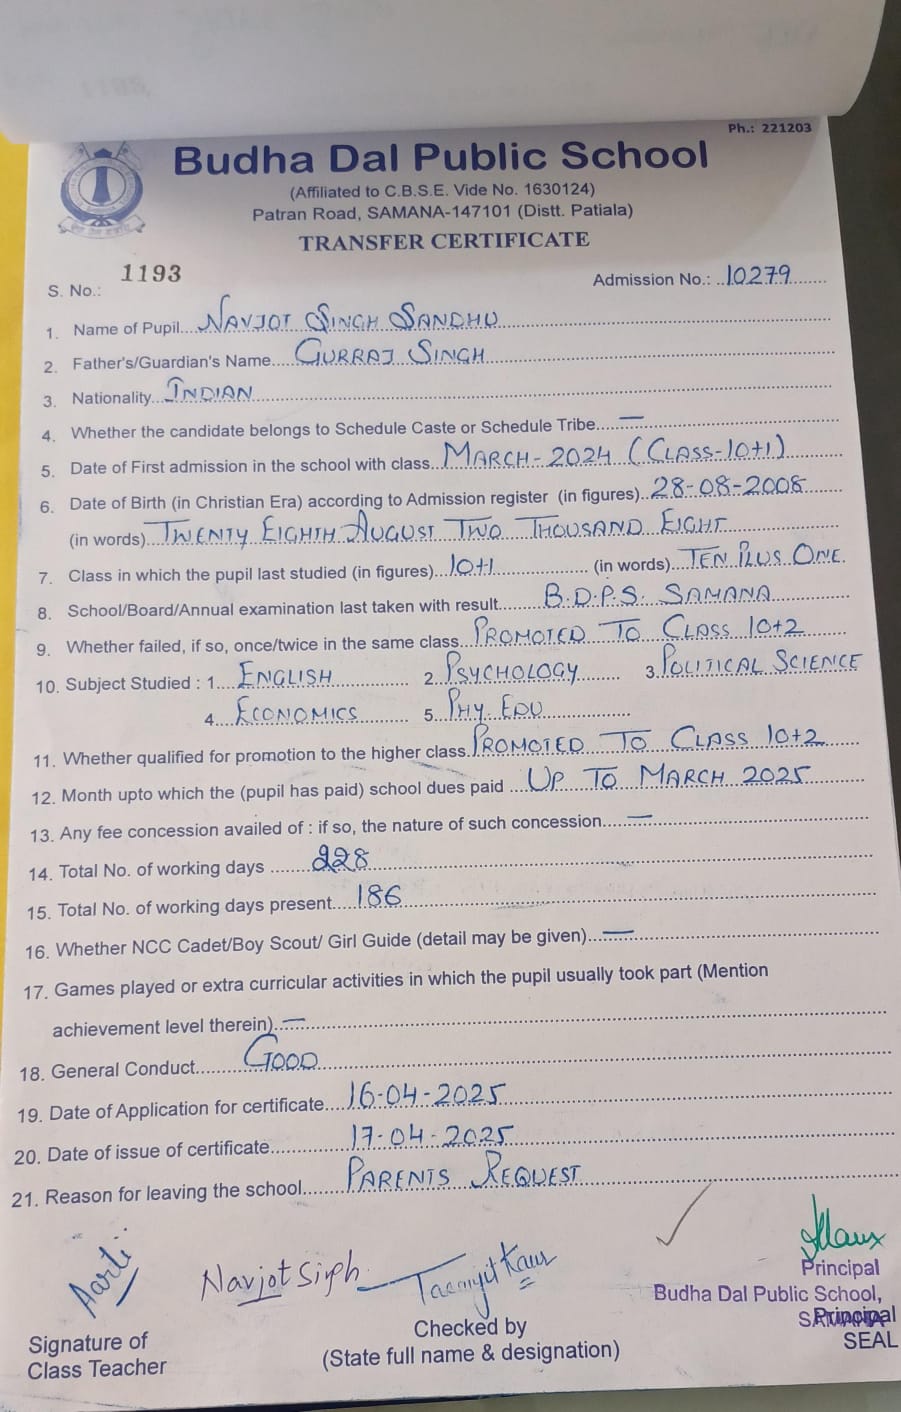 Ph.: 221203
Budha Dal Public School
(Affiliated to C.B.S.E. Vide No. 1630124)
Patran Road, SAMANA-147101 (Distt. Patiala)
TRANSFER CERTIFICATE
S. No.: 1193 Admission No.: 10279
1. Name of Pupil NAVJOT SINGH SANDHU
2. Father's/Guardian's Name GURRAJ SINGH
3. Nationality INDIAN
4. Whether the candidate belongs to Schedule Caste or Schedule Tribe —
5. Date of First admission in the school with class MARCH-2024 (CLASS-10+1)
6. Date of Birth (in Christian Era) according to Admission register (in figures) 28-08-2008
(in words) TWENTY EIGHTH AUGUST TWO THOUSAND EIGHT
7. Class in which the pupil last studied (in figures) 10+1 (in words) TEN PLUS ONE
8. School/Board/Annual examination last taken with result B.D.P.S. SAMANA
9. Whether failed, if so, once/twice in the same class PROMOTED TO CLASS 10+2
10. Subject Studied : 1. ENGLISH 2. PSYCHOLOGY 3. POLITICAL SCIENCE
4. ECONOMICS 5. PHY. EDU
11. Whether qualified for promotion to the higher class PROMOTED TO CLASS 10+2
12. Month upto which the (pupil has paid) school dues paid UP TO MARCH 2025
13. Any fee concession availed of : if so, the nature of such concession —
14. Total No. of working days 228
15. Total No. of working days present 186
16. Whether NCC Cadet/Boy Scout/ Girl Guide (detail may be given) —
17. Games played or extra curricular activities in which the pupil usually took part (Mention
achievement level therein) —
18. General Conduct GOOD
19. Date of Application for certificate 16-04-2025
20. Date of issue of certificate 17-04-2025
21. Reason for leaving the school PARENTS REQUEST
Aarti Navjot Singh
Principal
Budha Dal Public School,
SAMANA
Signature of
Class Teacher
Checked by
(State full name & designation)
Principal
SEAL